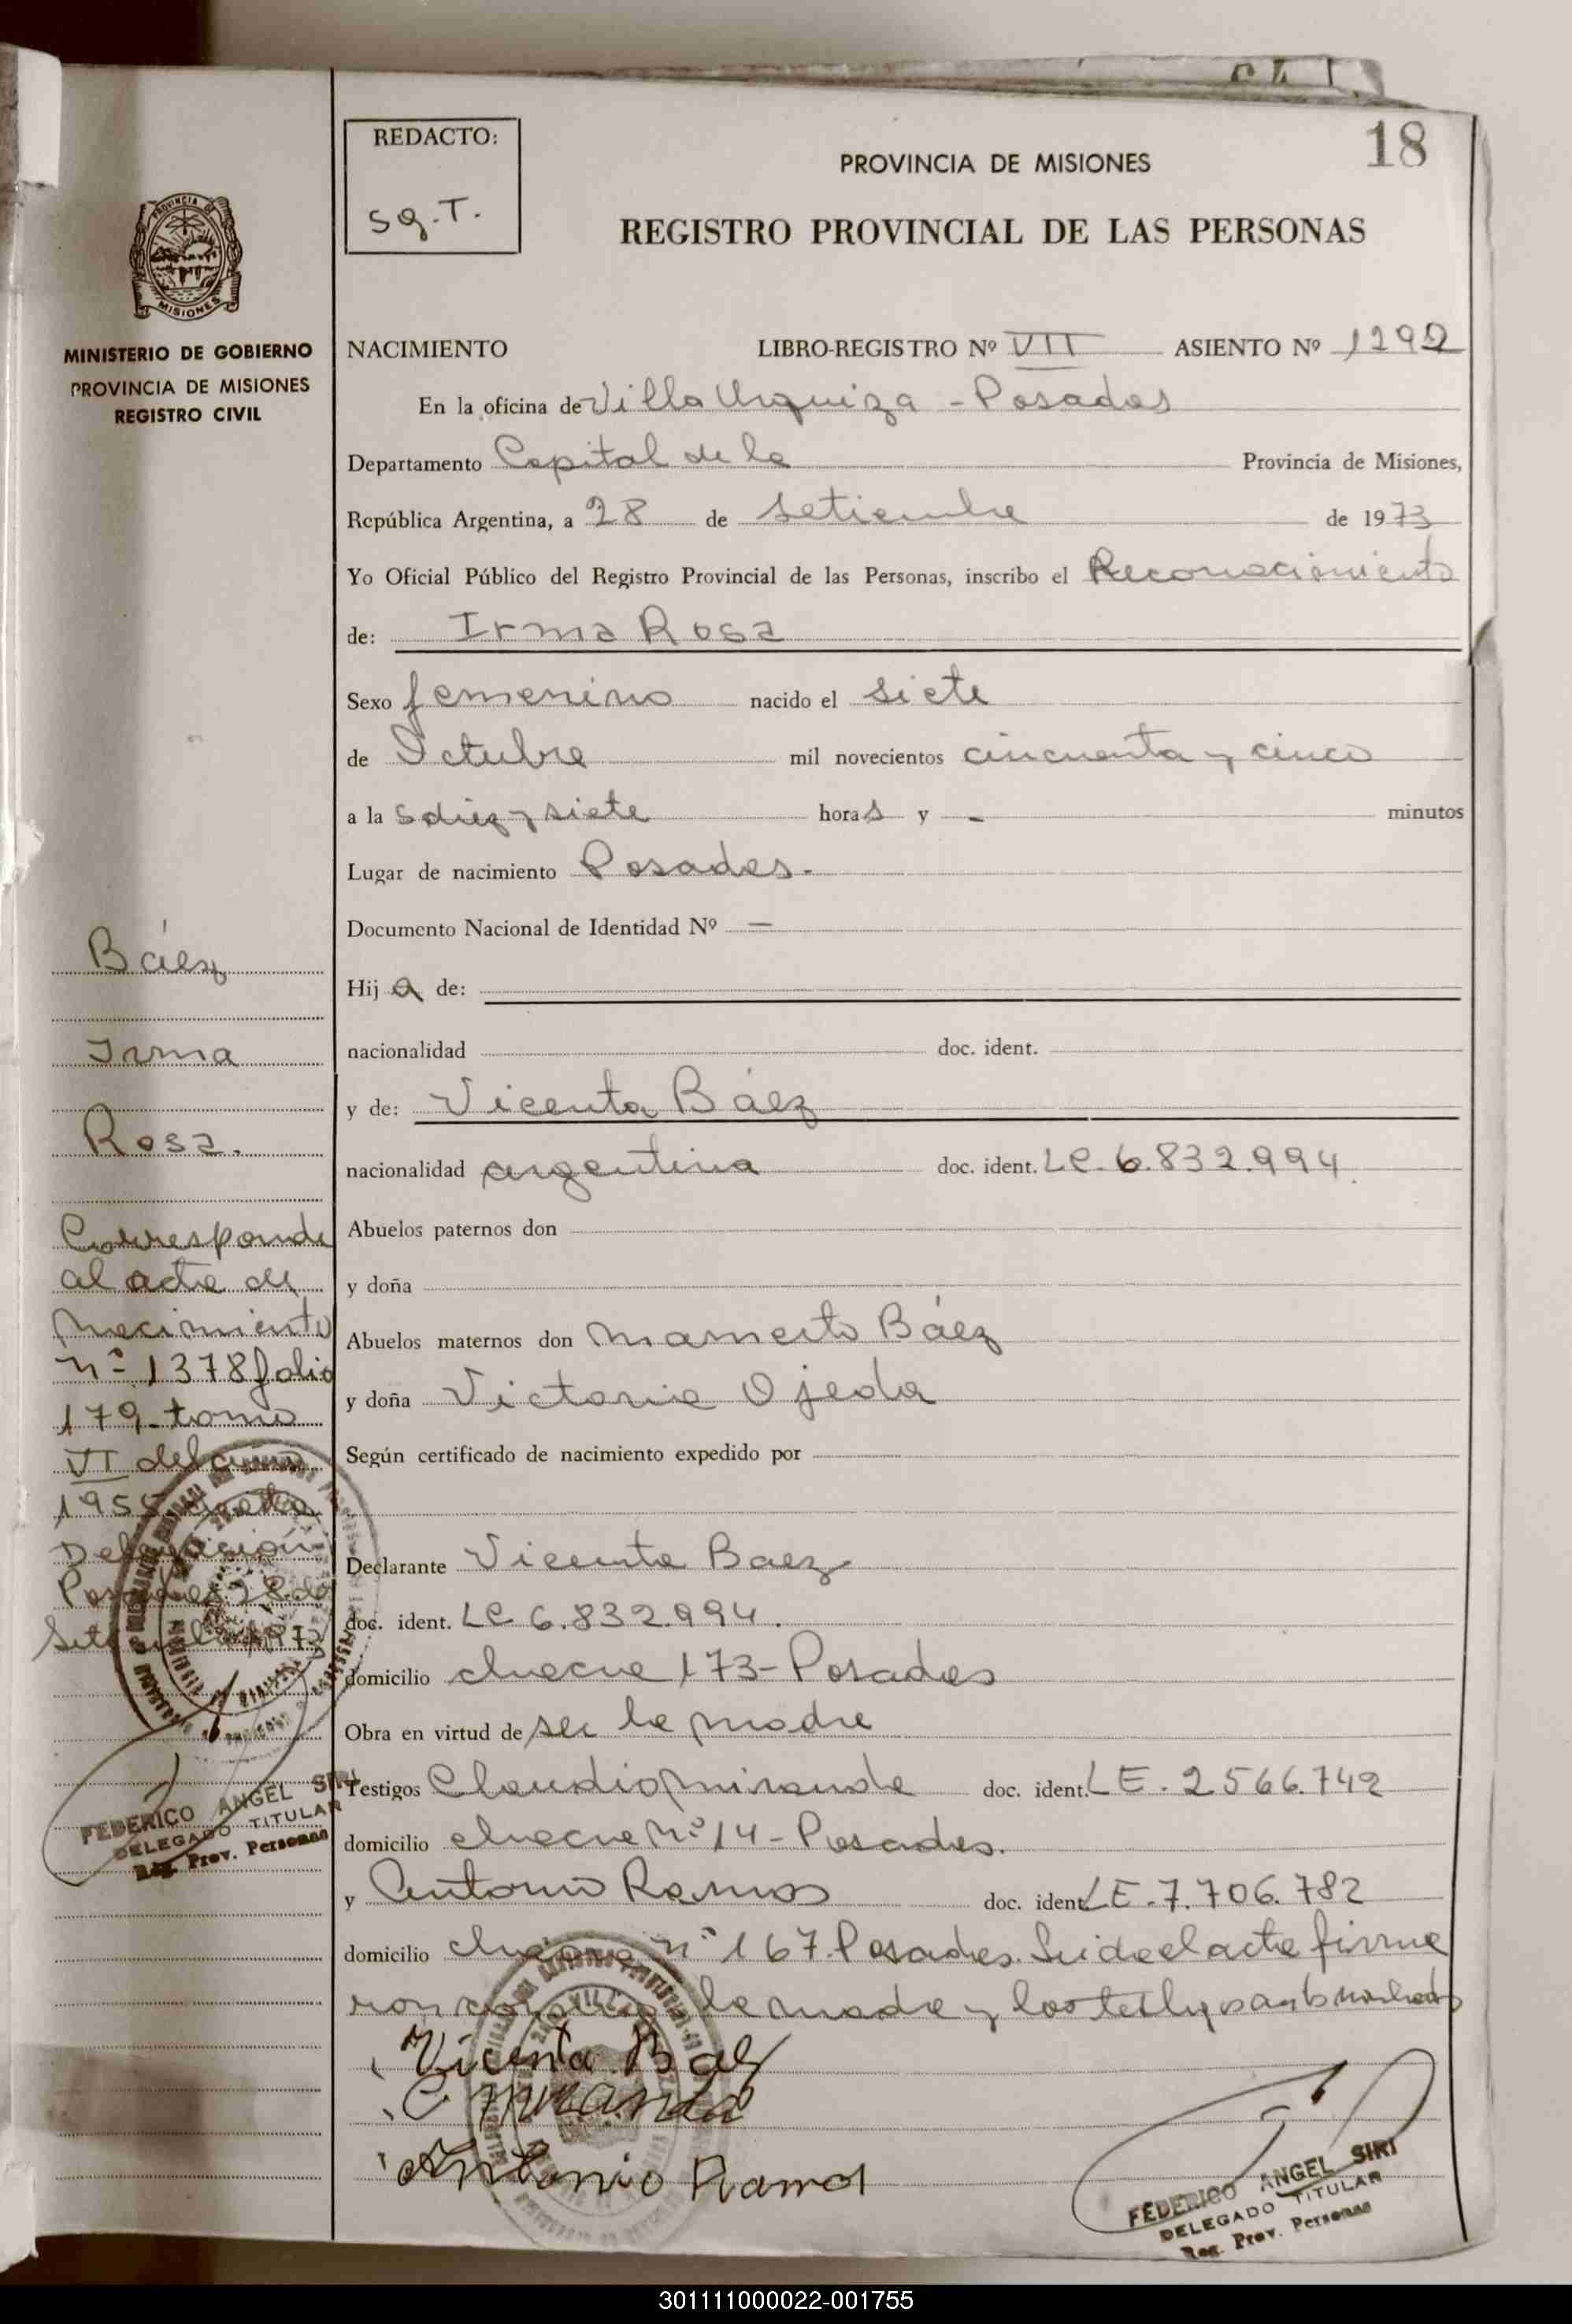 18
REDACTO:
Sg.T.
PROVINCIA DE MISIONES
REGISTRO PROVINCIAL DE LAS PERSONAS
MISIONES
MINISTERIO DE GOBIERNO
PROVINCIA DE MISIONES
REGISTRO CIVIL
NACIMIENTO LIBRO-REGISTRO Nº VII ASIENTO Nº 1292
En la oficina de Villa Urquiza - Posadas
Departamento Capital de la Provincia de Misiones,
República Argentina, a 28 de Setiembre de 1973
Yo Oficial Público del Registro Provincial de las Personas, inscribo el Reconocimiento
de: Irma Rosa
Sexo femenino nacido el siete
de Octubre mil novecientos cincuenta y cinco
a la s diez y siete horas y - minutos
Lugar de nacimiento Posadas.
Documento Nacional de Identidad Nº —
Hij a de:
nacionalidad doc. ident.
y de: Vicenta Báez
nacionalidad argentina doc. ident. LC. 6.832.994.
Abuelos paternos don
y doña
Abuelos maternos don Mamerto Báez
y doña Victoria Ojeda
Según certificado de nacimiento expedido por
Declarante Vicenta Baez
doc. ident. LC 6.832.994.
domicilio chacra 173- Posadas
Obra en virtud de ser la madre
Testigos Claudio Miranda doc. ident. LE. 2566.742
domicilio chacra Nº 14 - Posadas.
y Antonio Ramos doc. ident. LE. 7.706.782
domicilio chacra nº 167. Posadas. Leida el acta firma
ron conmigo la madre y los testigos nombrados
Vicenta Baez
C Miranda
Antonio Ramos
FEDERICO ANGEL SIRI
DELEGADO TITULAR
Reg. Prov. Personas
Báez
Irma
Rosa.
Corresponde
al acta de
Nacimiento
nº 1378 folio
179 - tomo
VI del año
1955 de esta
Delegación
Posadas 28 de
Setiembre 1973
FEDERICO ANGEL SIRI
DELEGADO TITULAR
Reg. Prov. Personas
301111000022-001755